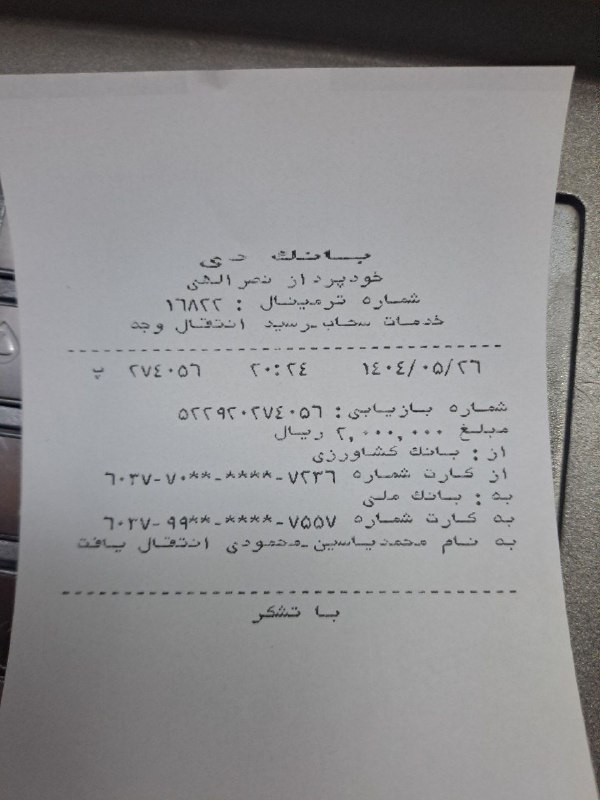 بانك دی
خودپرداز نصرالهی
شماره ترمینال : ۱۶۸۲۲
خدمات سحاب-رسید انتقال وجه
۱۴۰۴/۰۵/۲۶ ۲۰:۲۴ ۲۷۴۰۵۶ پ
شماره بازیابی: ۵۲۲۹۲۰۲۷۴۰۵۶
مبلغ ۲,۰۰۰,۰۰۰ ریال
از: بانك كشاورزی
از كارت شماره ۶۰۳۷-۷۰**-****-۷۲۳۶
به : بانك ملی
به كارت شماره ۶۰۳۷-۹۹**-****-۷۵۵۷
به نام محمدیاسین-محمودی انتقال یافت
با تشكر